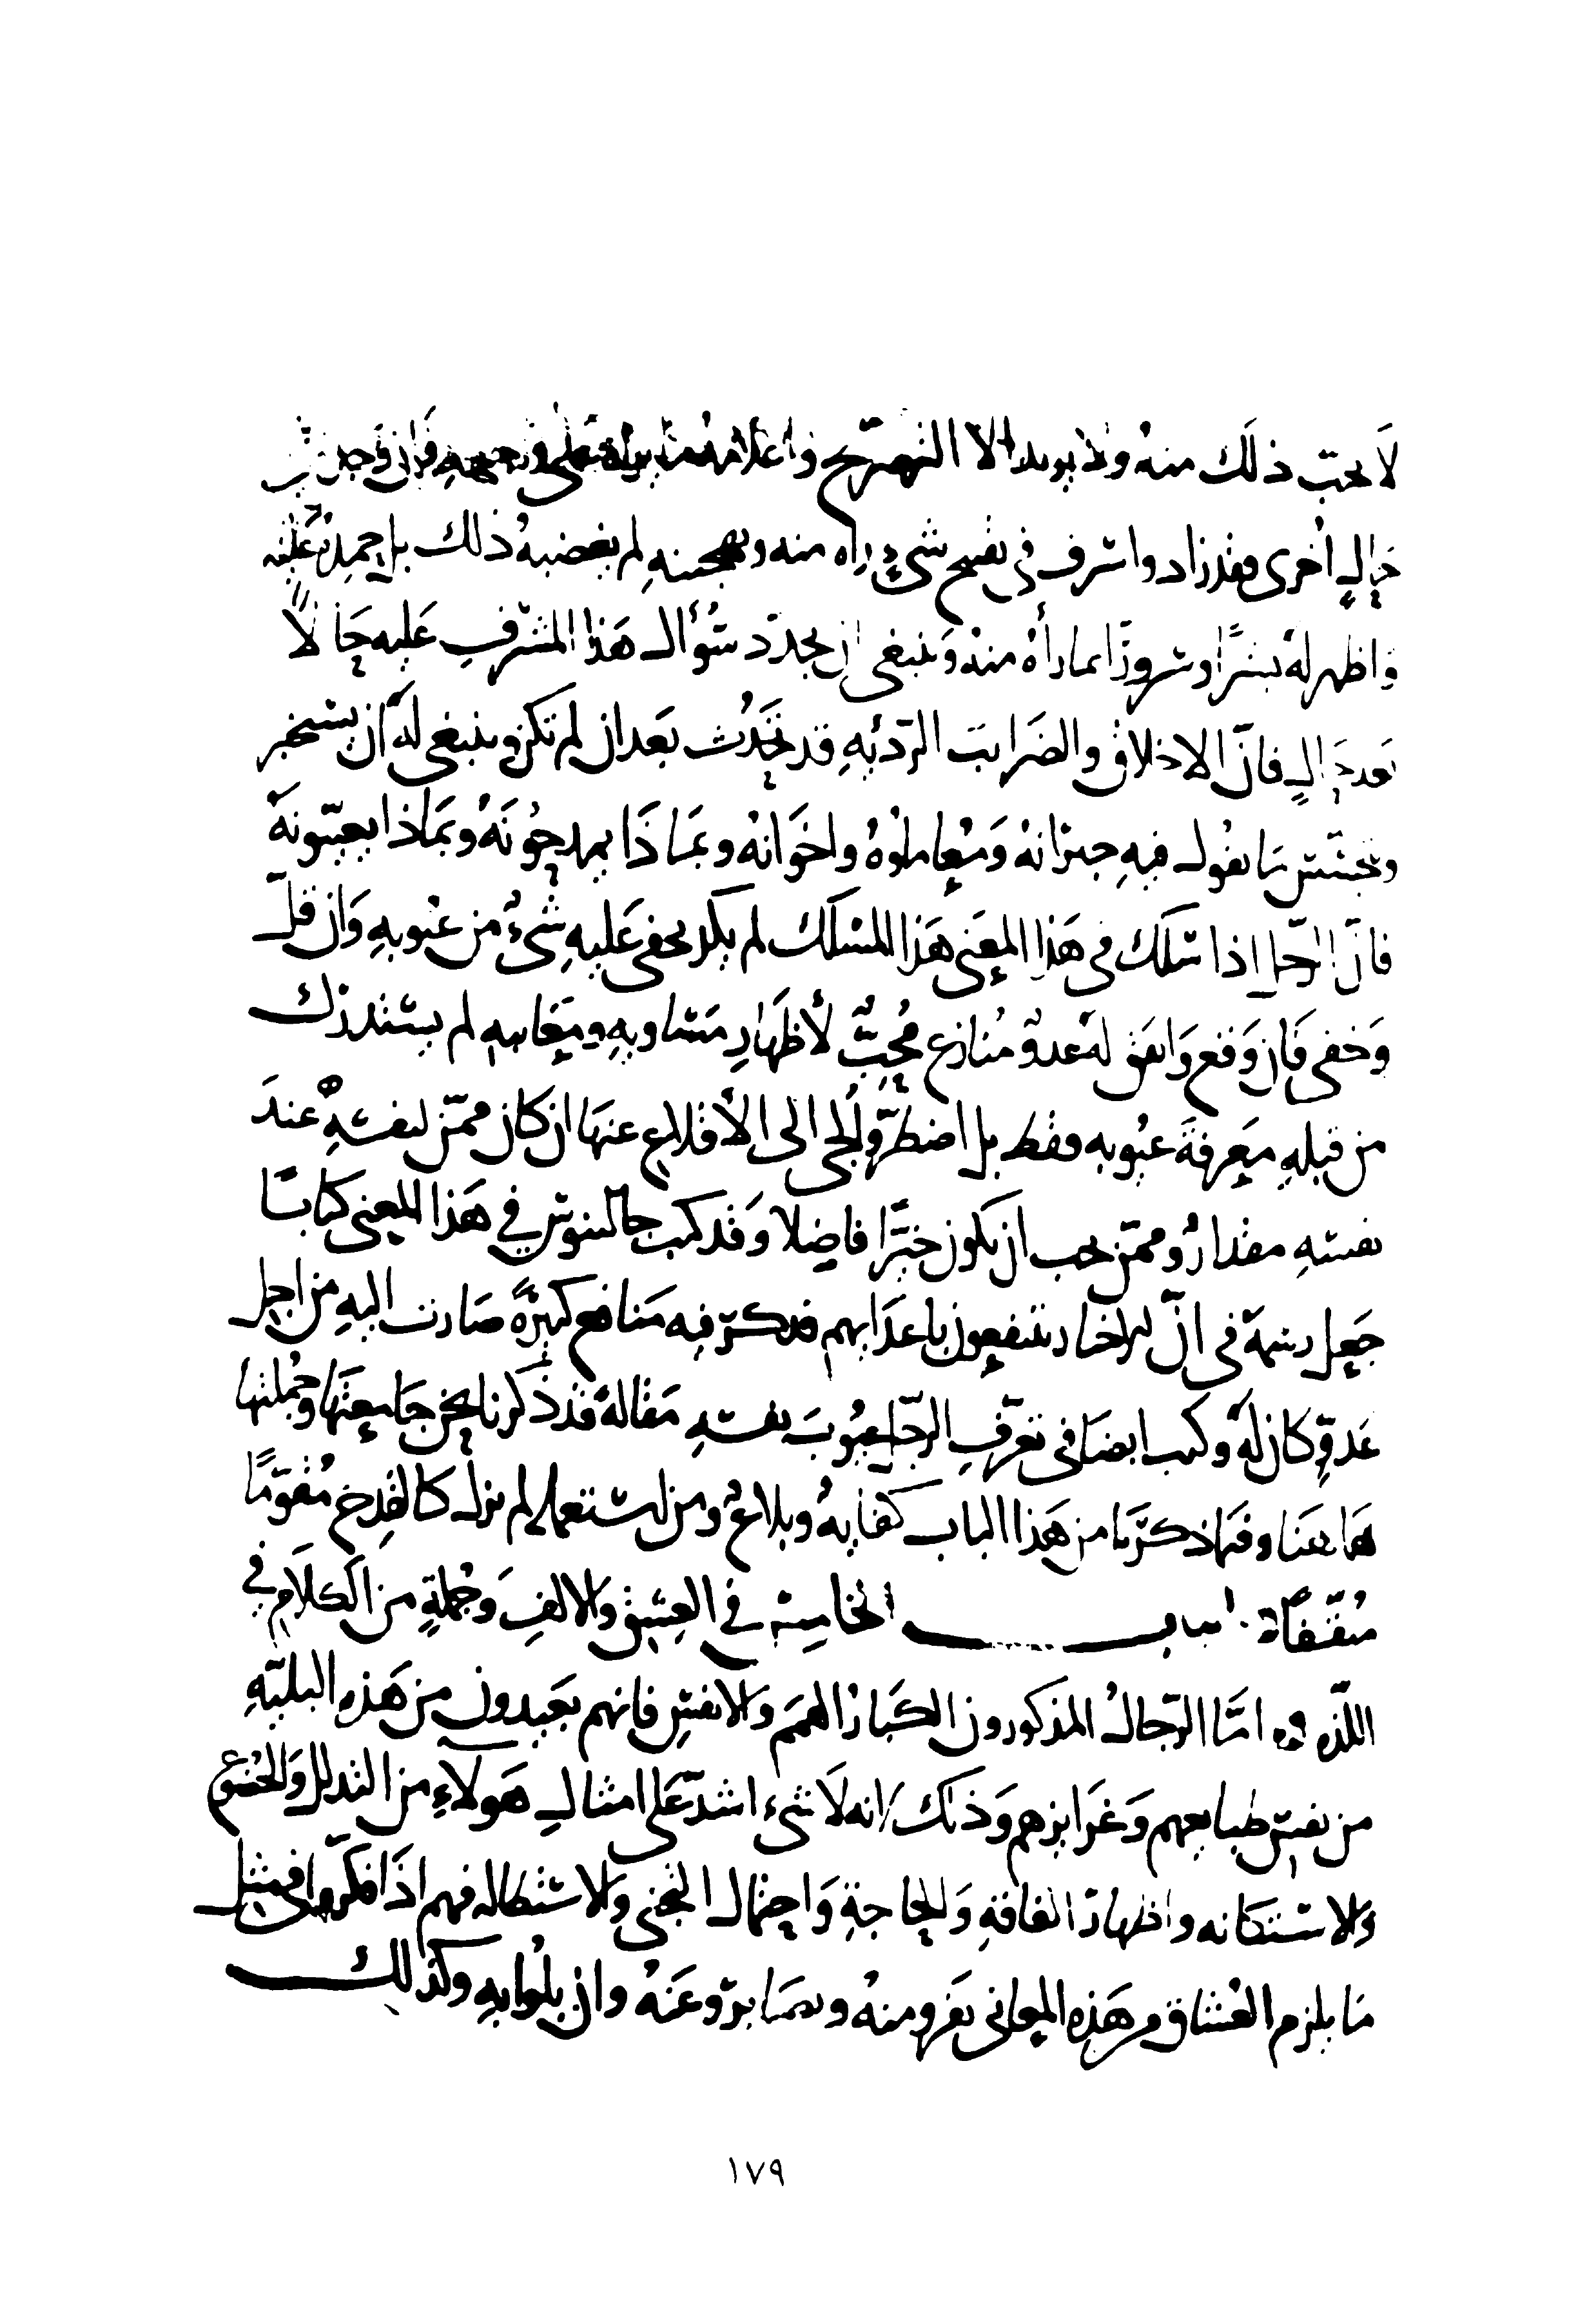 لَا يحبّ ذلك منه ولا يريد الا التصريح واعلامه فان
حالٍ أخرى وقد زاد واسرف في تقبيح شيءٍ راه منه وتهجينهِ لم يغضبهُ ذلك بل حمده عليه
واظهر لهُ بِشرًا وسرورًا بما رأهُ منه وَينبغي ان يجدّد سُؤال هَذا المشرفِ عَليهِ حَالًا
بَعدَ حَالٍ فانّ الاخلاق والضَرايبَ الرّديئهِ قد تحدُث بَعد ان لم تكن وينبغي لهُ ان يستخبر
ويتجسّس مَا يقول فيهِ جيرانهُ وَمُعاملوُهُ واخَوانهُ وبمَاذَا يمدحُونَهُ وبمَاذا يعيبّونهُ
فانّ الرّجل اذا سَلك في هَذا المعنى هَذا المسَلك لم يكد يخفى عَليهِ شيءٌ من عُيوبهِ وَان قلّ
وَخفى فَان وَقع وَاتفق لهُ عدوٌ مُنازع مُحِبٌّ لأظهَارِ مَسَاويهِ ومَعَايبهِ لم يستدرك
من قبلهِ مَعرفةَ عيُوبه فقط بل اضطرّ وألجى الى الأقلاع عنهَا ان كان ممّن لنفسهِ عندَ
نفسهِ مقدارٌ وممّن يحب ان يكون خيّرًا فاضِلا وَقد كتب جالينوس في هَذا المعنى كتابًا
جَعل رسمهُ في انّ الاخيار ينتفعون باعدَايهم فذكر فيه مَنافع كثيرةً صَارت اليهِ من اجل
عَدوٍّ كان لهُ وكتب ايضا في تعرّفِ الرّجل عيُوبَ نفسهِ مقالةً قد ذَكرنا نحن جَامعتهَا وجُملتها
هَا هنا وفيما ذكرنَا من هَذا الباب كفايهٌ وبلاغٌ ومن استعمله لم يزل كالقِدح مُقوّمًا
مُثقفًا الباب الخامس في العِشق والالفِ وَجُملةٍ من الكلَامِ في
اللّذه امّا الرّجالُ المذكورون الكبَارُ الهمَم والانفسِ فانهم بَعيدون من هَذهِ البليّهِ
من نفس طبايعهم وَغَرايزهم وَذلك انه لَا شيءَ اشدّ عَلى امثالِ هَولاءِ من التذلل وَالخضوع
وَالاستكانه واظهار الفاقهِ وَالحاجةِ وَاحتمال التجنى وَالاستطاله فهم اذَا فكروا في مثل
مَا يلزم العُشاق من هَذهِ المعانى نفروا منهُ وتصَابروا عَنهُ وان بلُوا بهِ وكذلك
١٧٩